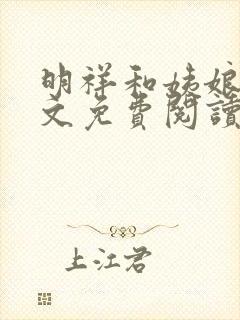 明祥和姨娘
文免費閱讀
上江君